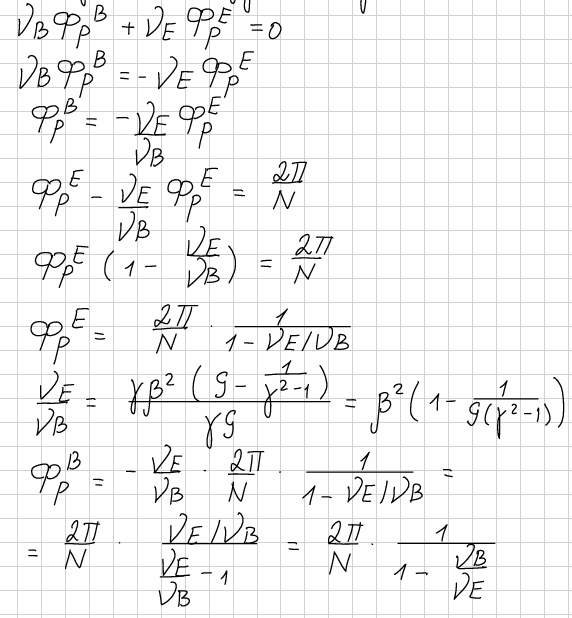 ν_B φ_p^B + ν_E φ_p^E = 0
ν_B φ_p^B = - ν_E φ_p^E
φ_p^B = - ν_E/ν_B φ_p^E
φ_p^E - ν_E/ν_B φ_p^E = 2π/N
φ_p^E (1 - ν_E/ν_B) = 2π/N
φ_p^E = 2π/N · 1/(1 - ν_E/ν_B)
ν_E/ν_B = γβ² (G - 1/(γ²-1)) / γG = β² (1 - 1/(G(γ²-1)))
φ_p^B = - ν_E/ν_B · 2π/N · 1/(1 - ν_E/ν_B) =
= 2π/N · (ν_E/ν_B)/(ν_E/ν_B - 1) = 2π/N · 1/(1 - ν_B/ν_E)